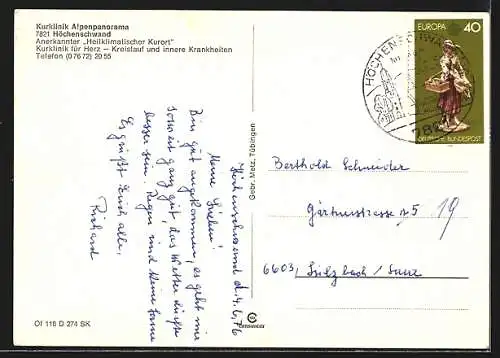 Kurklinik Alpenpanorama
7821 Höchenschwand
Anerkannter „Heilklimatischer Kurort"
Kurklinik für Herz – Kreislauf und innere Krankheiten
Telefon (07672) 2055
Höchenschwand d. 4.6.76
Meine Lieben!
Bin gut angekommen, es geht mir
soweit ganz gut, das Wetter dürfte
besser sein. Regen und keine Sonne
Es grüßt Euch alle,
Richard
Of 116 D 274 SK
Gebr. Metz, Tübingen
HÖCHENSCHWAND
EUROPA 40
DEUTSCHE BUNDESPOST
Berthold Schneider
Gärtnerstrasse 5 19
6603, Sulzbach / Saar